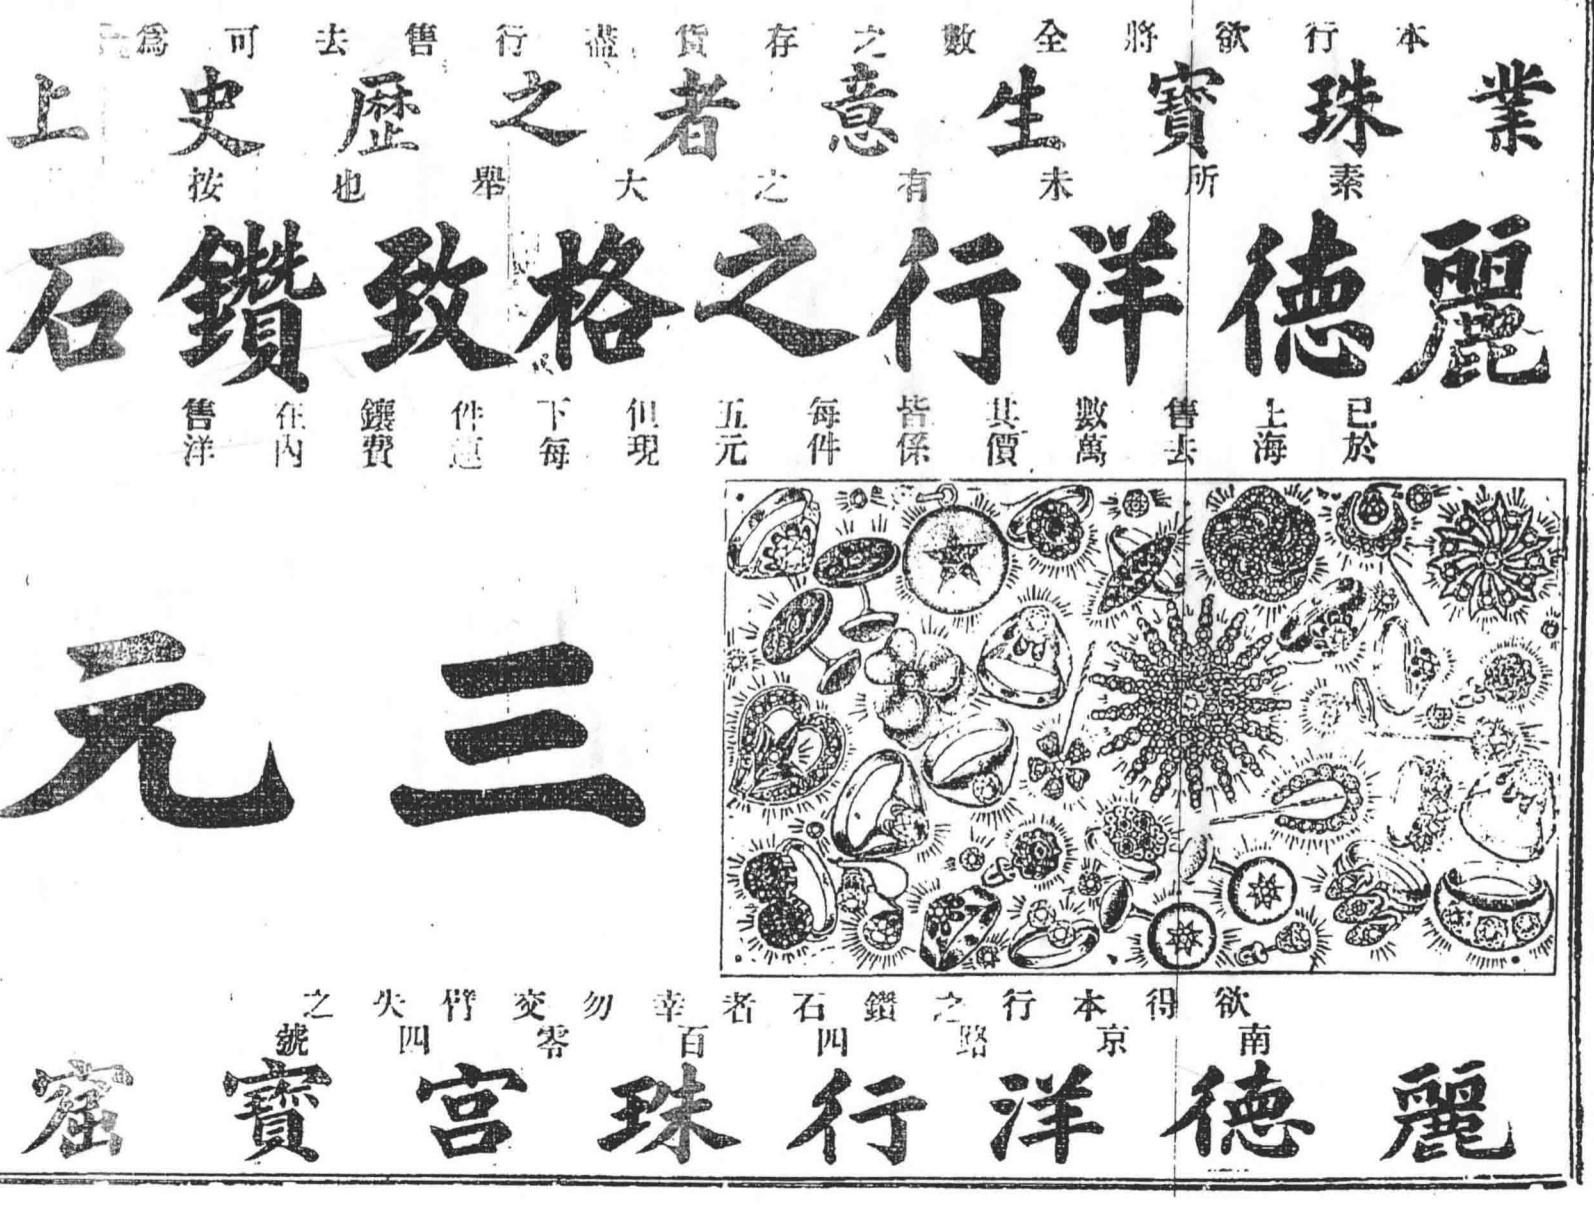 本行欲將全數之存貨盡行售去可爲
業珠寶生意者之歷史上
素所未有之大舉也按
麗德洋行之格致鑽石
已於上海售去數萬其價皆係每件五元但現下每件連鑲費在內售洋
三元
欲得本行之鑽石者幸勿交臂失之
南京路四百零四號
麗德洋行珠宮寶窟